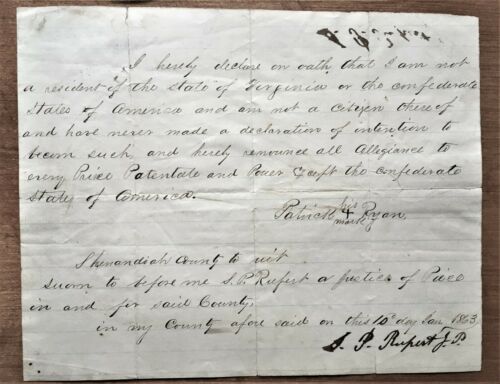 I hereby declare on oath that I am not
a resident of the state of Virginia or the confederate
States of America and am not a citizen thereof
and have never made a declaration of intention to
becom such, and hereby renounce all Allegiance to
every Prince Patentate and Power Except the confederate
states of America.
Patrick his X mark Ryan
Shenandoah County to wit
suorn to before me S. P. Rupert a Justice of Peice
in and for said County
in my County afore said on this 10th day Jan 1863
S. P. Rupert J. P.